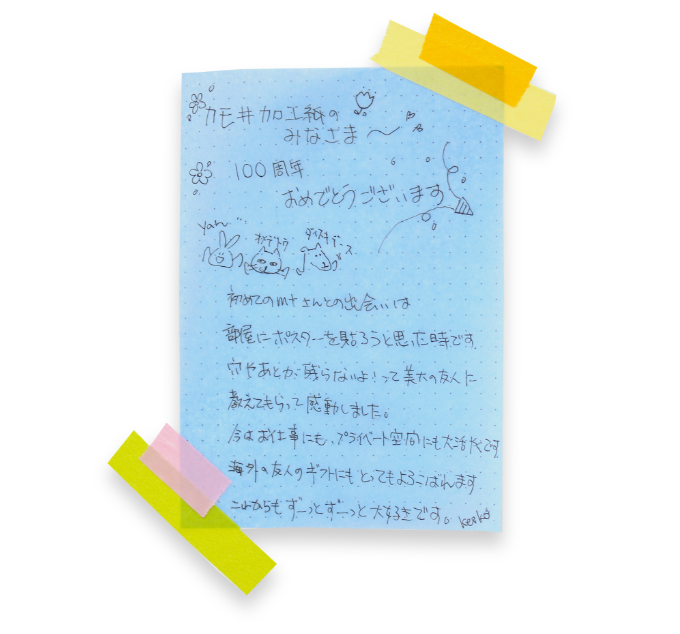 カモ井加工紙の
みなさま〜
100周年
おめでとうございます
yay...
オメデトウ
ダイスキデース
初めてのmtさんとの出会いは
部屋にポスターを貼ろうと思った時です。
穴やあとが残らないよ！って美大の友人に
教えてもらって感動しました。
今はお仕事にも、プライベート空間にも大活躍です
海外の友人のギフトにもとってもよろこばれます
これからもずーっとずーっと大好きです。